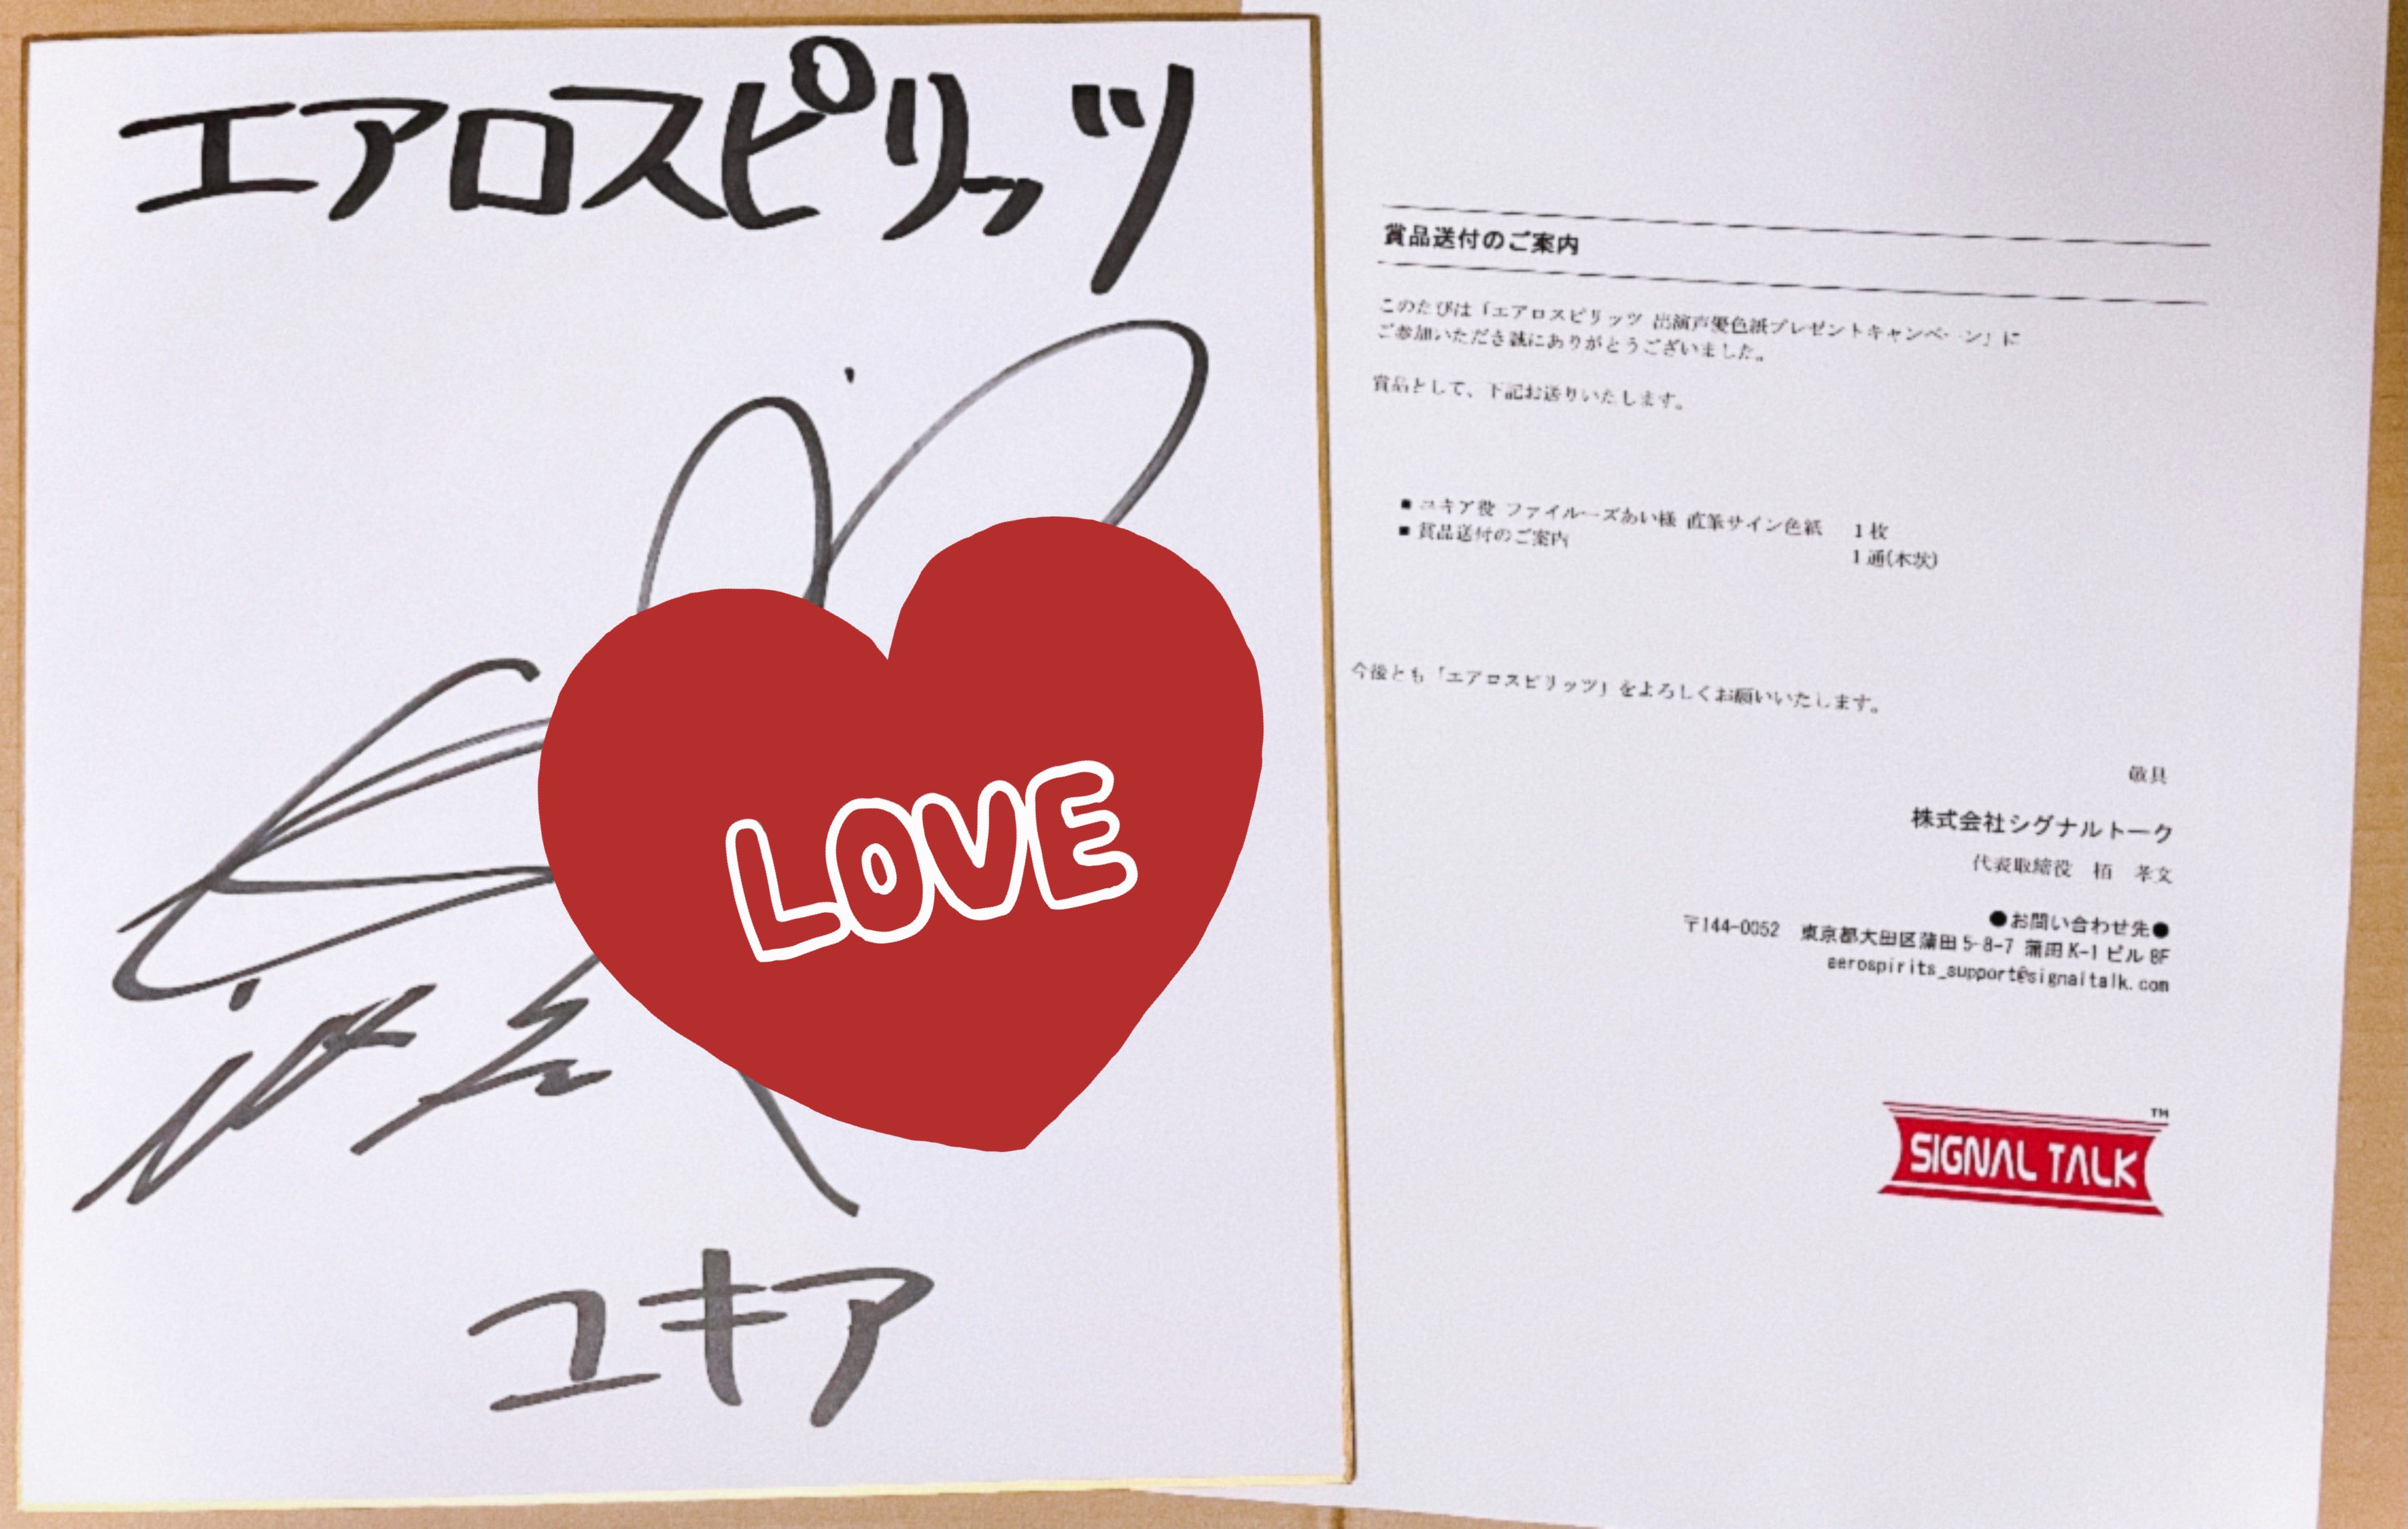 エアロスピリッツ
LOVE
ユキア
賞品送付のご案内
このたびは「エアロスピリッツ 出演声優色紙プレゼントキャンペーン」に
ご参加いただき誠にありがとうございました。
賞品として、下記お送りいたします。
■ ユキア役 ファイルーズあい様 直筆サイン色紙 1枚
■ 賞品送付のご案内 1通(本状)
今後とも「エアロスピリッツ」をよろしくお願いいたします。
敬具
株式会社シグナルトーク
代表取締役 栢 孝文
●お問い合わせ先●
〒144-0052 東京都大田区蒲田5-8-7 蒲田K-1ビル8F
aerospirits_support@signaltalk.com
SIGNAL TALK TM